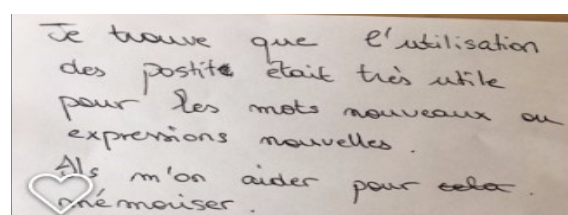 Je trouve que l'utilisation
des postits était très utile
pour les mots nouveaux ou
expressions nouvelles.
Als m'on aider pour cela.
mémoriser.